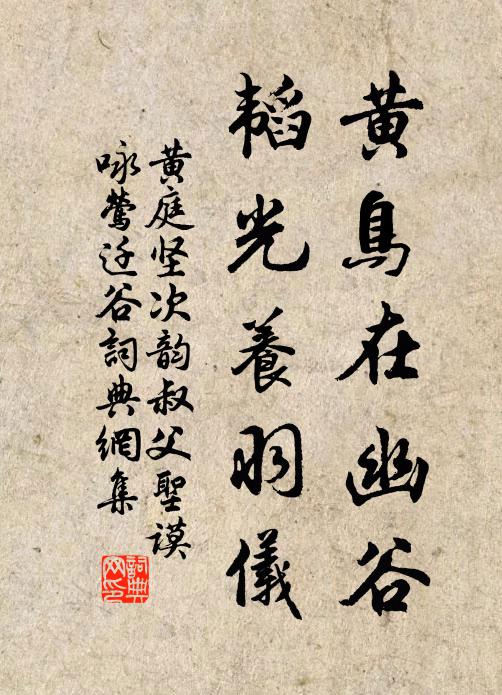 黄鳥在幽谷
韬光養羽儀
黄庭坚次韵叔父聖谟
咏鶯迁谷詞典網集
詞典网印